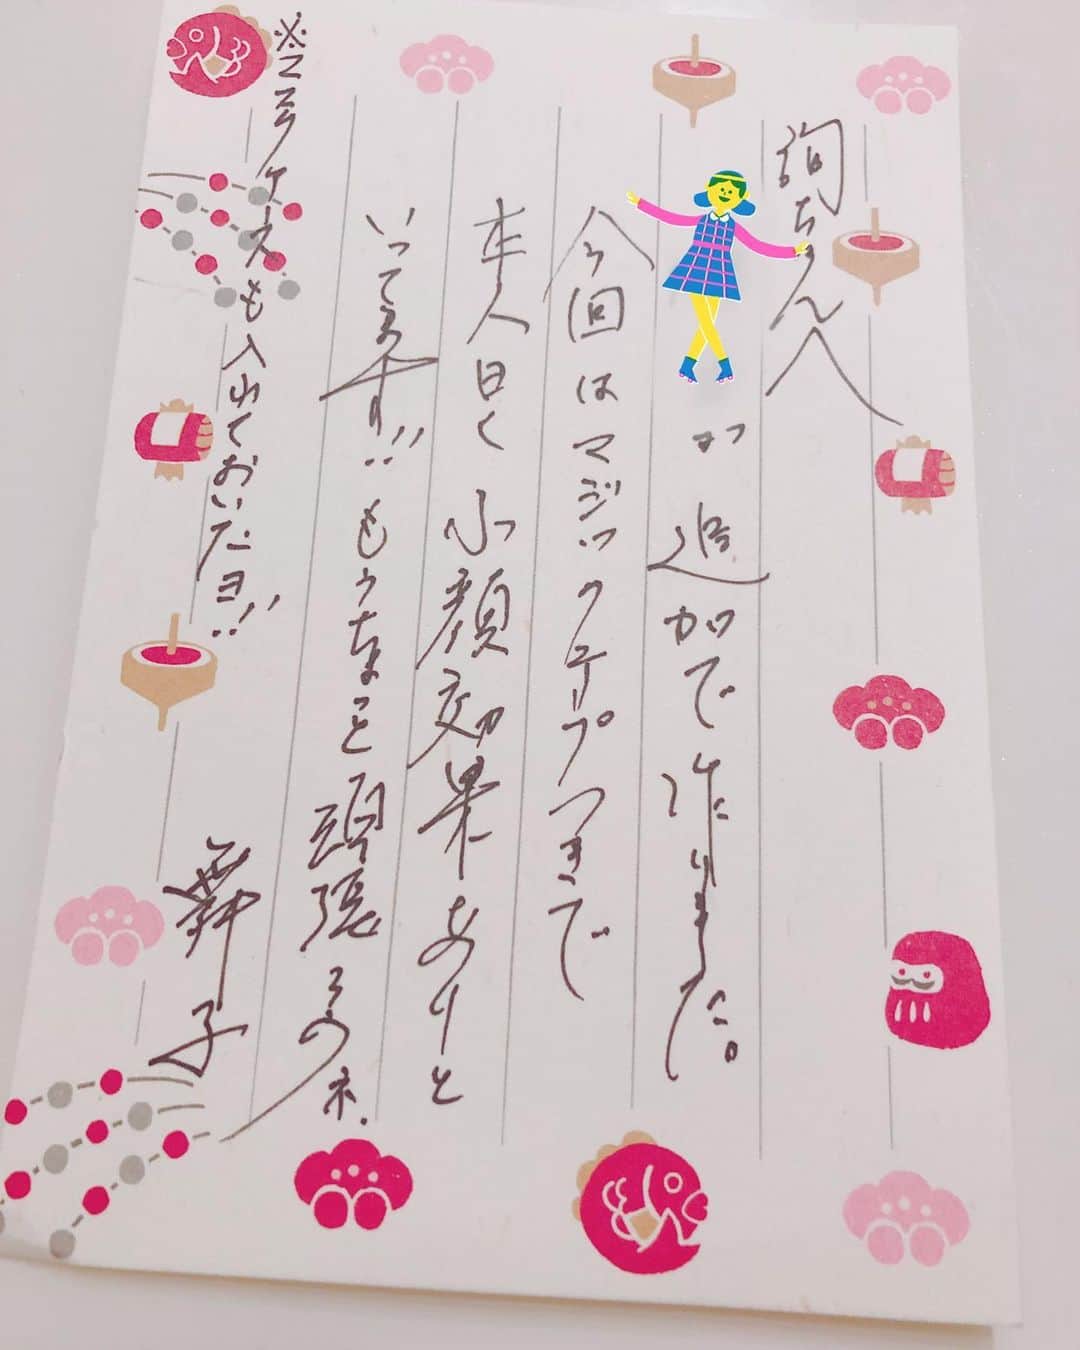 詢ちゃんへ
が追加で作りました。
今回はマジックテープつきで
本人曰く小顔効果ありと
いってます!!もうちょっと頑張るのネ.
舞子
※ミラケースも入れておいたヨ!!